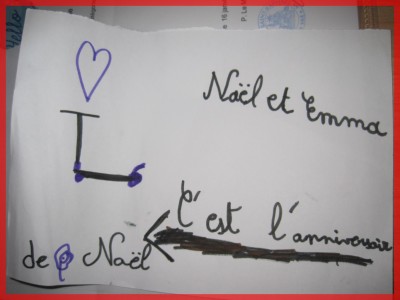 Naël et Emma
C'est l'anniversair
de Naël